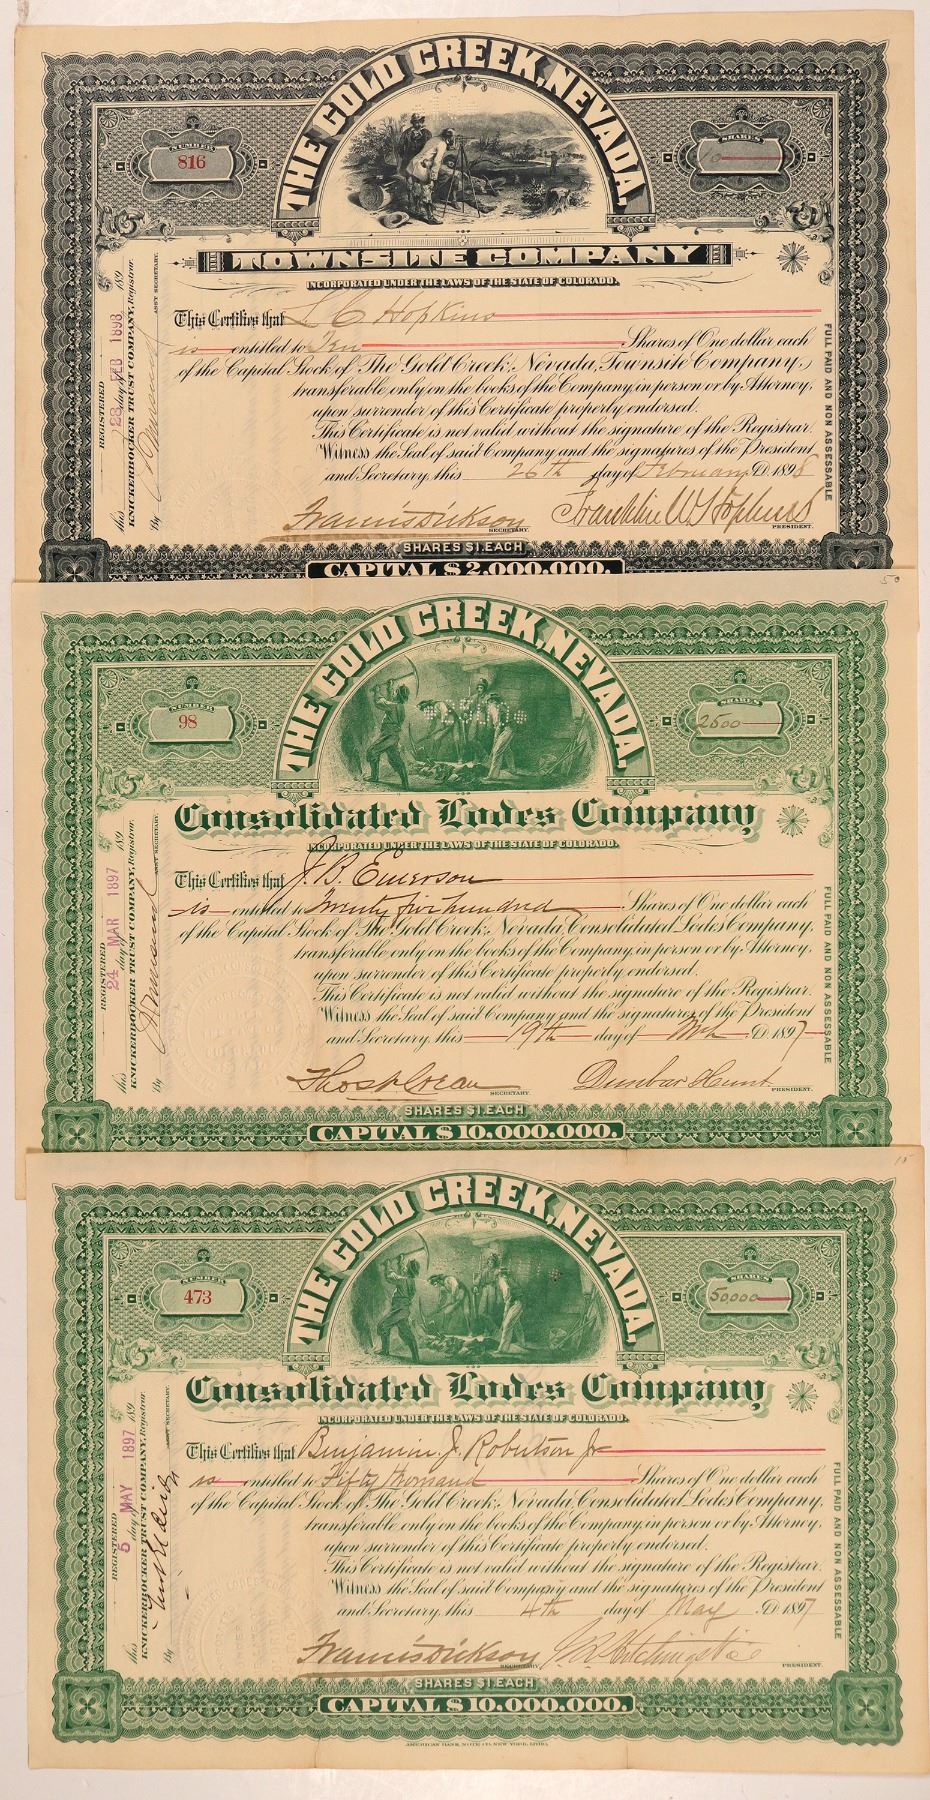 THE GOLD CREEK, NEVADA,
NUMBER
816
SHARES
10
TOWNSITE COMPANY
INCORPORATED UNDER THE LAWS OF THE STATE OF COLORADO.
This Certifies that L C Hopkins
is entitled to Ten Shares of One dollar each
of the Capital Stock of The Gold Creek, Nevada, Townsite Company,
transferable only on the books of the Company in person or by Attorney,
upon surrender of this Certificate properly endorsed.
This Certificate is not valid without the signature of the Registrar.
Witness the Seal of said Company and the signatures of the President
and Secretary, this 26th day of February A.D. 1898
Francis Dickson SECRETARY. Franklin W Hopkins PRESIDENT.
SHARES $1. EACH
CAPITAL $2,000,000.
REGISTERED
this 28 day of FEB 1898 189
KNICKERBOCKER TRUST COMPANY, Registrar.
By ASST SECRETARY.
FULL PAID AND NON ASSESSABLE
50
THE GOLD CREEK, NEVADA,
NUMBER
98
SHARES
2500
Consolidated Lodes Company
INCORPORATED UNDER THE LAWS OF THE STATE OF COLORADO.
This Certifies that J. B. Emerson
is entitled to Twenty five hundred Shares of One dollar each
of the Capital Stock of The Gold Creek, Nevada, Consolidated Lodes Company,
transferable only on the books of the Company in person or by Attorney,
upon surrender of this Certificate properly endorsed.
This Certificate is not valid without the signature of the Registrar.
Witness the Seal of said Company and the signatures of the President
and Secretary, this 19th day of Mch A.D. 1897
SECRETARY. Dunbar Hunt PRESIDENT.
SHARES $1. EACH
CAPITAL $10,000,000.
REGISTERED
this 24 day of MAR 1897 189
KNICKERBOCKER TRUST COMPANY, Registrar.
By ASST SECRETARY.
FULL PAID AND NON ASSESSABLE
15
THE GOLD CREEK, NEVADA,
NUMBER
473
SHARES
50,000
Consolidated Lodes Company
INCORPORATED UNDER THE LAWS OF THE STATE OF COLORADO.
This Certifies that Benjamin J. Robertson Jr
is entitled to Fifty thousand Shares of One dollar each
of the Capital Stock of The Gold Creek, Nevada, Consolidated Lodes Company,
transferable only on the books of the Company in person or by Attorney,
upon surrender of this Certificate properly endorsed.
This Certificate is not valid without the signature of the Registrar.
Witness the Seal of said Company and the signatures of the President
and Secretary, this 4th day of May A.D. 1897
Francis Dickson SECRETARY. PRESIDENT.
SHARES $1. EACH
CAPITAL $10,000,000.
AMERICAN BANK NOTE CO. NEW YORK.
REGISTERED
this 5 day of MAY 1897 189
KNICKERBOCKER TRUST COMPANY, Registrar.
By SECRETARY.
FULL PAID AND NON ASSESSABLE